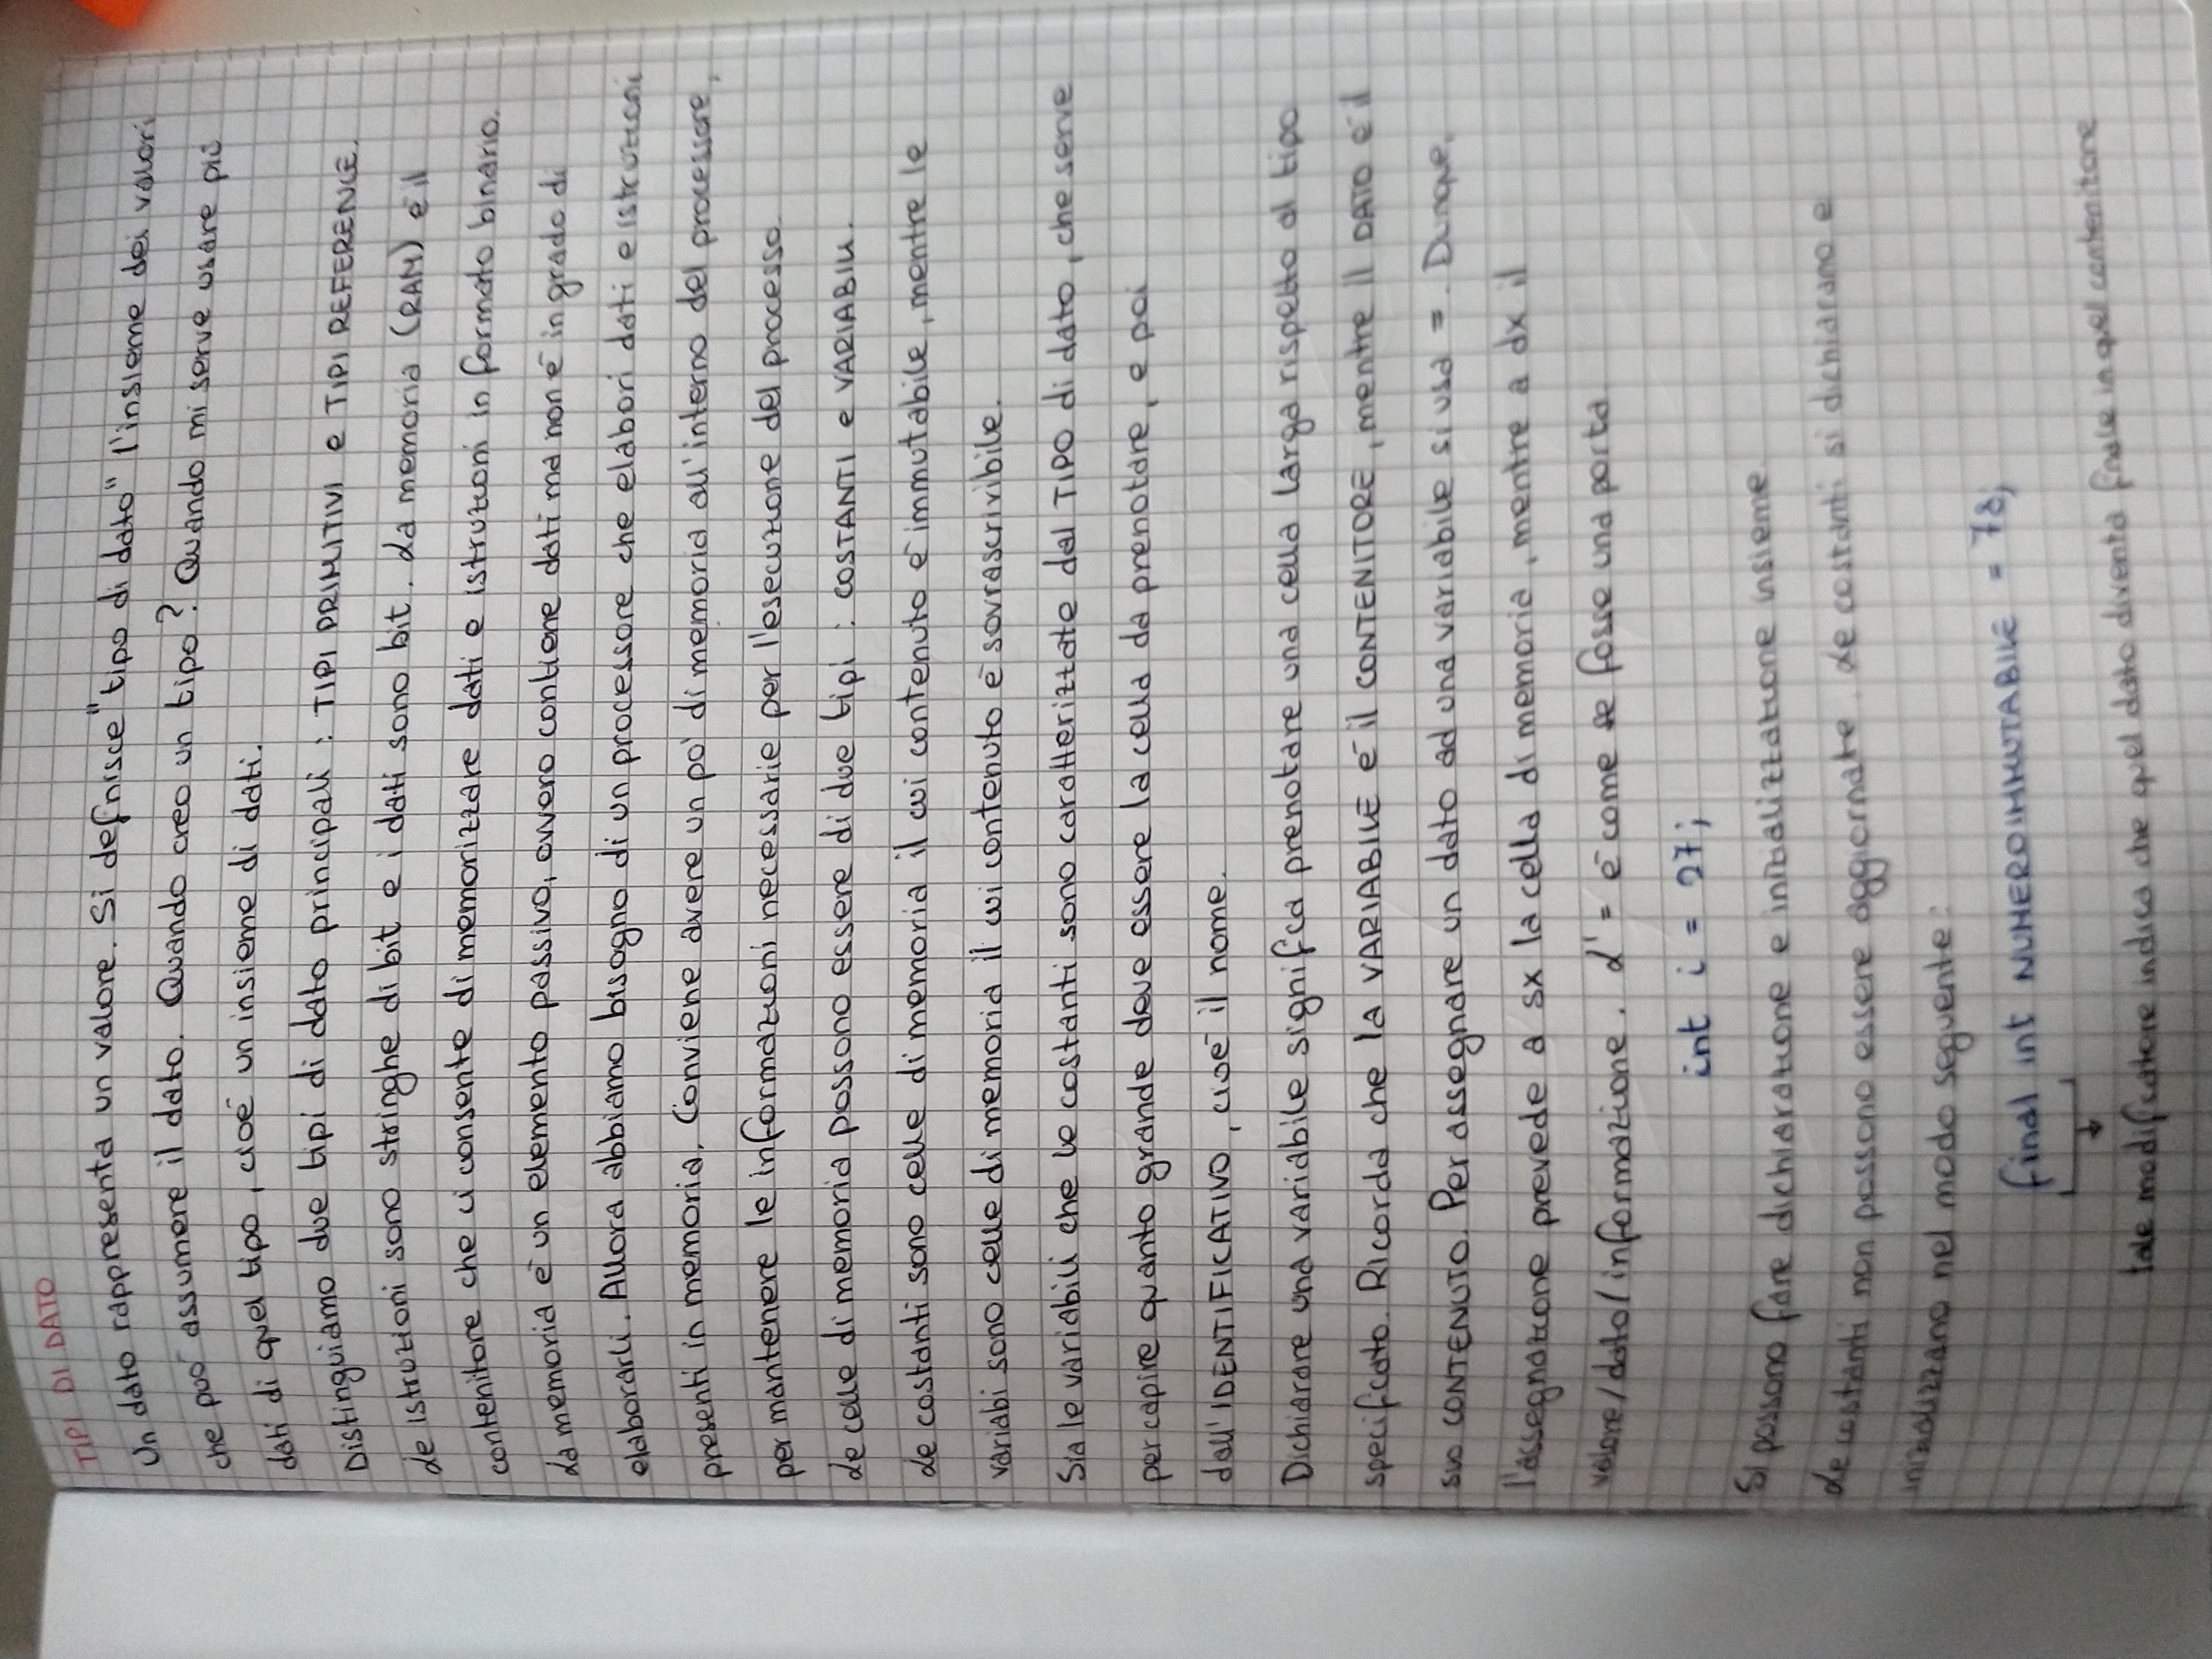 TIPI DI DATO
Un dato rappresenta un valore. Si defnisce "tipo di dato" l'insieme dei valori
che può assumere il dato. Quando creo un tipo? Quando mi serve usare più
dati di quel tipo, cioè un insieme di dati.
Distinguiamo due tipi di dato principali: TIPI PRIMITIVI e TIPI REFERENCE.
Le istruzioni sono stringhe di bit e i dati sono bit. La memoria (RAM) è il
contenitore che ci consente di memorizzare dati e istruzioni in formato binario.
La memoria è un elemento passivo, ovvero contiene dati ma non è in grado di
elaborarli. Allora abbiamo bisogno di un processore che elabori dati e istruzioni
presenti in memoria. Conviene avere un po' di memoria all'interno del processore,
per mantenere le informazioni necessarie per l'esecuzione del processo.
Le celle di memoria possono essere di due tipi: COSTANTI e VARIABILI.
Le costanti sono celle di memoria il cui contenuto è immutabile, mentre le
variabi sono celle di memoria il cui contenuto è sovrascrivibile.
Sia le variabili che le costanti sono caratterizzate dal TIPO di dato, che serve
per capire quanto grande deve essere la cella da prenotare, e poi
dall'IDENTIFICATIVO, cioè il nome.
Dichiarare una variabile signifca prenotare una cella larga rispetto al tipo
specificato. Ricorda che la VARIABILE è il CONTENITORE, mentre il DATO è il
suo CONTENUTO. Per assegnare un dato ad una variabile si usa =. Dunque,
l'assegnazione prevede a sx la cella di memoria, mentre a dx il
valore/dato/informazione. L' = è come se fosse una porta.
int i = 27;
Si possono fare dichiarazione e inizializzazione insieme.
Le costanti non possono essere aggiornate. Le costanti si dichiarano e
inizializzano nel modo seguente:
final int NUMEROIMMUTABILE = 78;
tale modificatore indica che quel dato diventa finale in quel contenitore